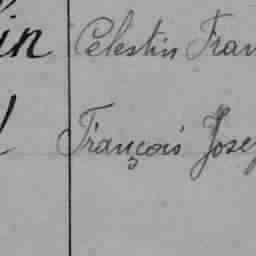 in Celestin Fran
François Jose